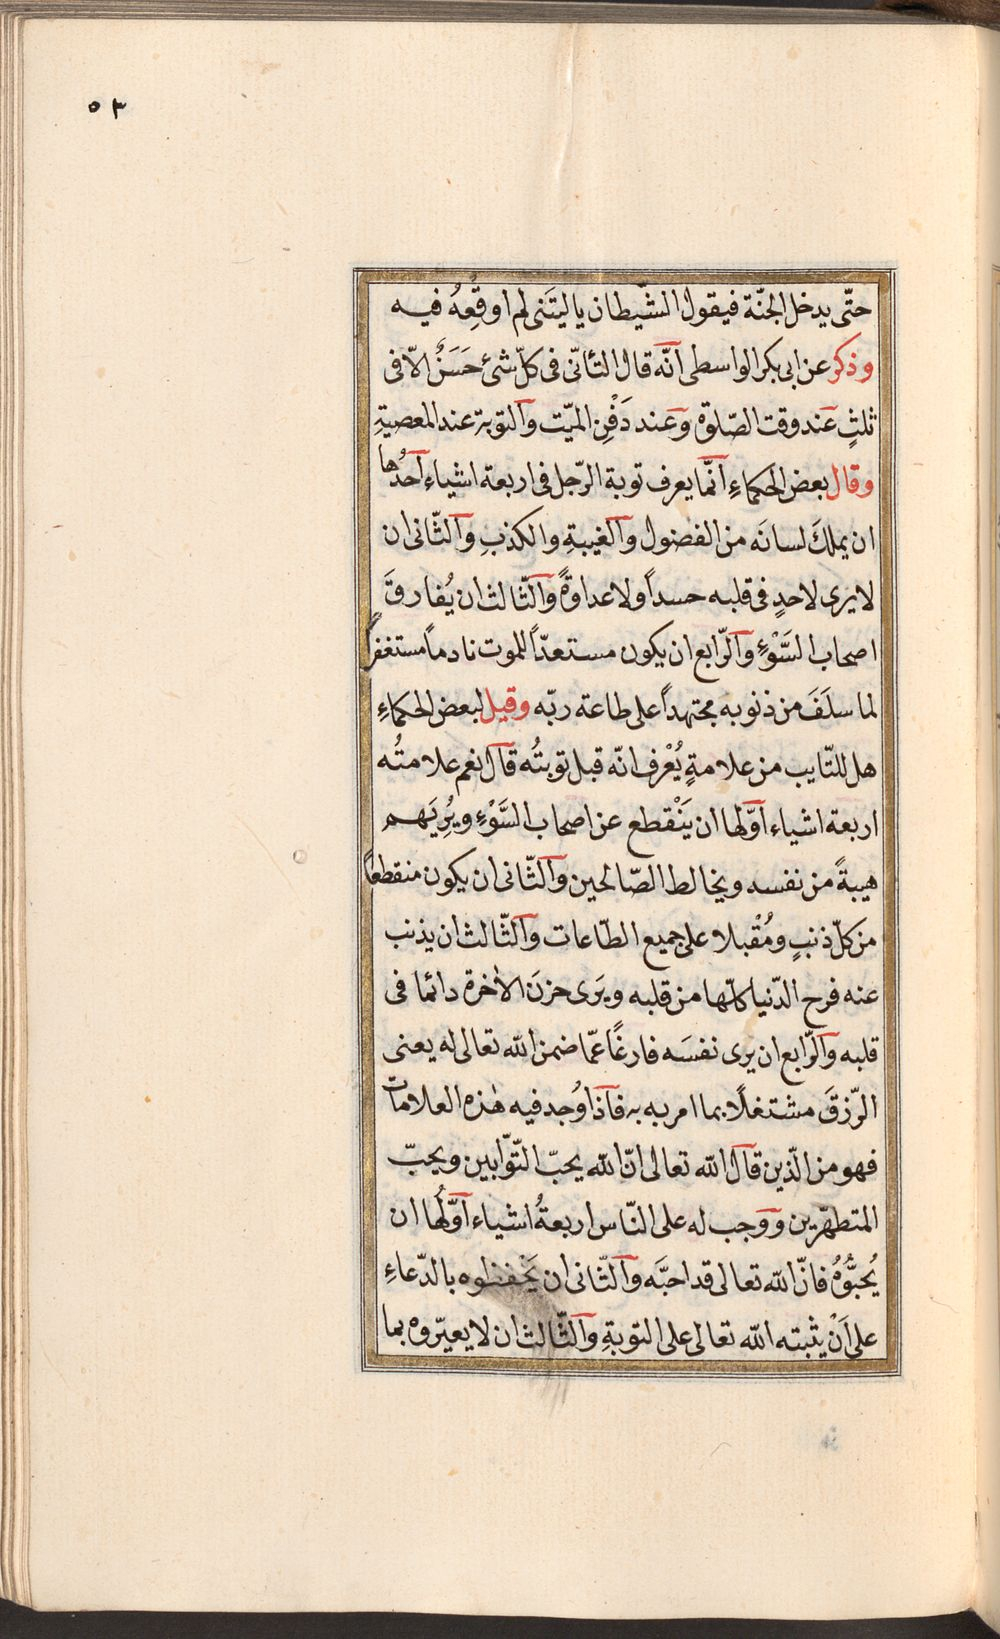 ٥٣
حتّى يدخل الجنّة فيقول الشّيطان ياليتنى لم اوقِعهُ فيه
وذكر عن ابى بكر الواسطى انّه قال التأنّى فى كلّ شئ حَسَنٌ الاّ فى
ثلثٍ عند وقت الصّلوة وعند دَفْنِ الميّت والتوبة عند المعصيةِ
وقال بعض الحكماءِ انّما يعرف توبة الرّجل فى اربعة اشياء احدُها
ان يملكَ لسانَه من الفضول والغيبةِ والكذبِ والثّانى ان
لا يرى لاحدٍ فى قلبه حسداً ولا عداوةً والثّالث ان يُفارقَ
اصحاب السَّوْءِ والرّابع ان يكون مستعدّاً للموت نادماً مستغفراً
لما سلَفَ من ذنوبه مجتهداً على طاعة ربّه وقيل لبعض الحكماءِ
هل للتّايب من علامةٍ يُعْرف انّه قبل توبتُه قال نعم علامتُه
اربعة اشياء اوّلها ان يَنْقطع عن اصحاب السَّوْءِ ويُرِيَهم
هيبةً من نفسه ويخالط الصّالحين والثّانى ان يكون منقطعاً
من كلّ ذنبٍ ومُقْبلا على جميع الطّاعات والثّالث ان يذنب
عنه فرح الدّنيا كلّها من قلبه ويَرى حزنَ الاٰخرة دائما فى
قلبه والرّابع ان يرى نفسَه فارغًا عمّا ضمن اللّه تعالى له يعنى
الرّزقَ مشتغلًا بما امر به به فاذا وُجد فيه هٰذه العلامات
فهو من الّذين قال اللّه تعالى انّ اللّه يحبّ التّوّابين ويحبّ
المتطهّرين ووجب له على النّاس اربعةُ اشياء اوّلُها ان
يُحبُّوُهُ فانّ اللّه تعالى قد احبَّه والثّانى ان يَحْفظوه بالدّعاءِ
على اَنْ يثبته اللّه تعالى على التوبةِ والثّالث ان لا يعيّروه بما